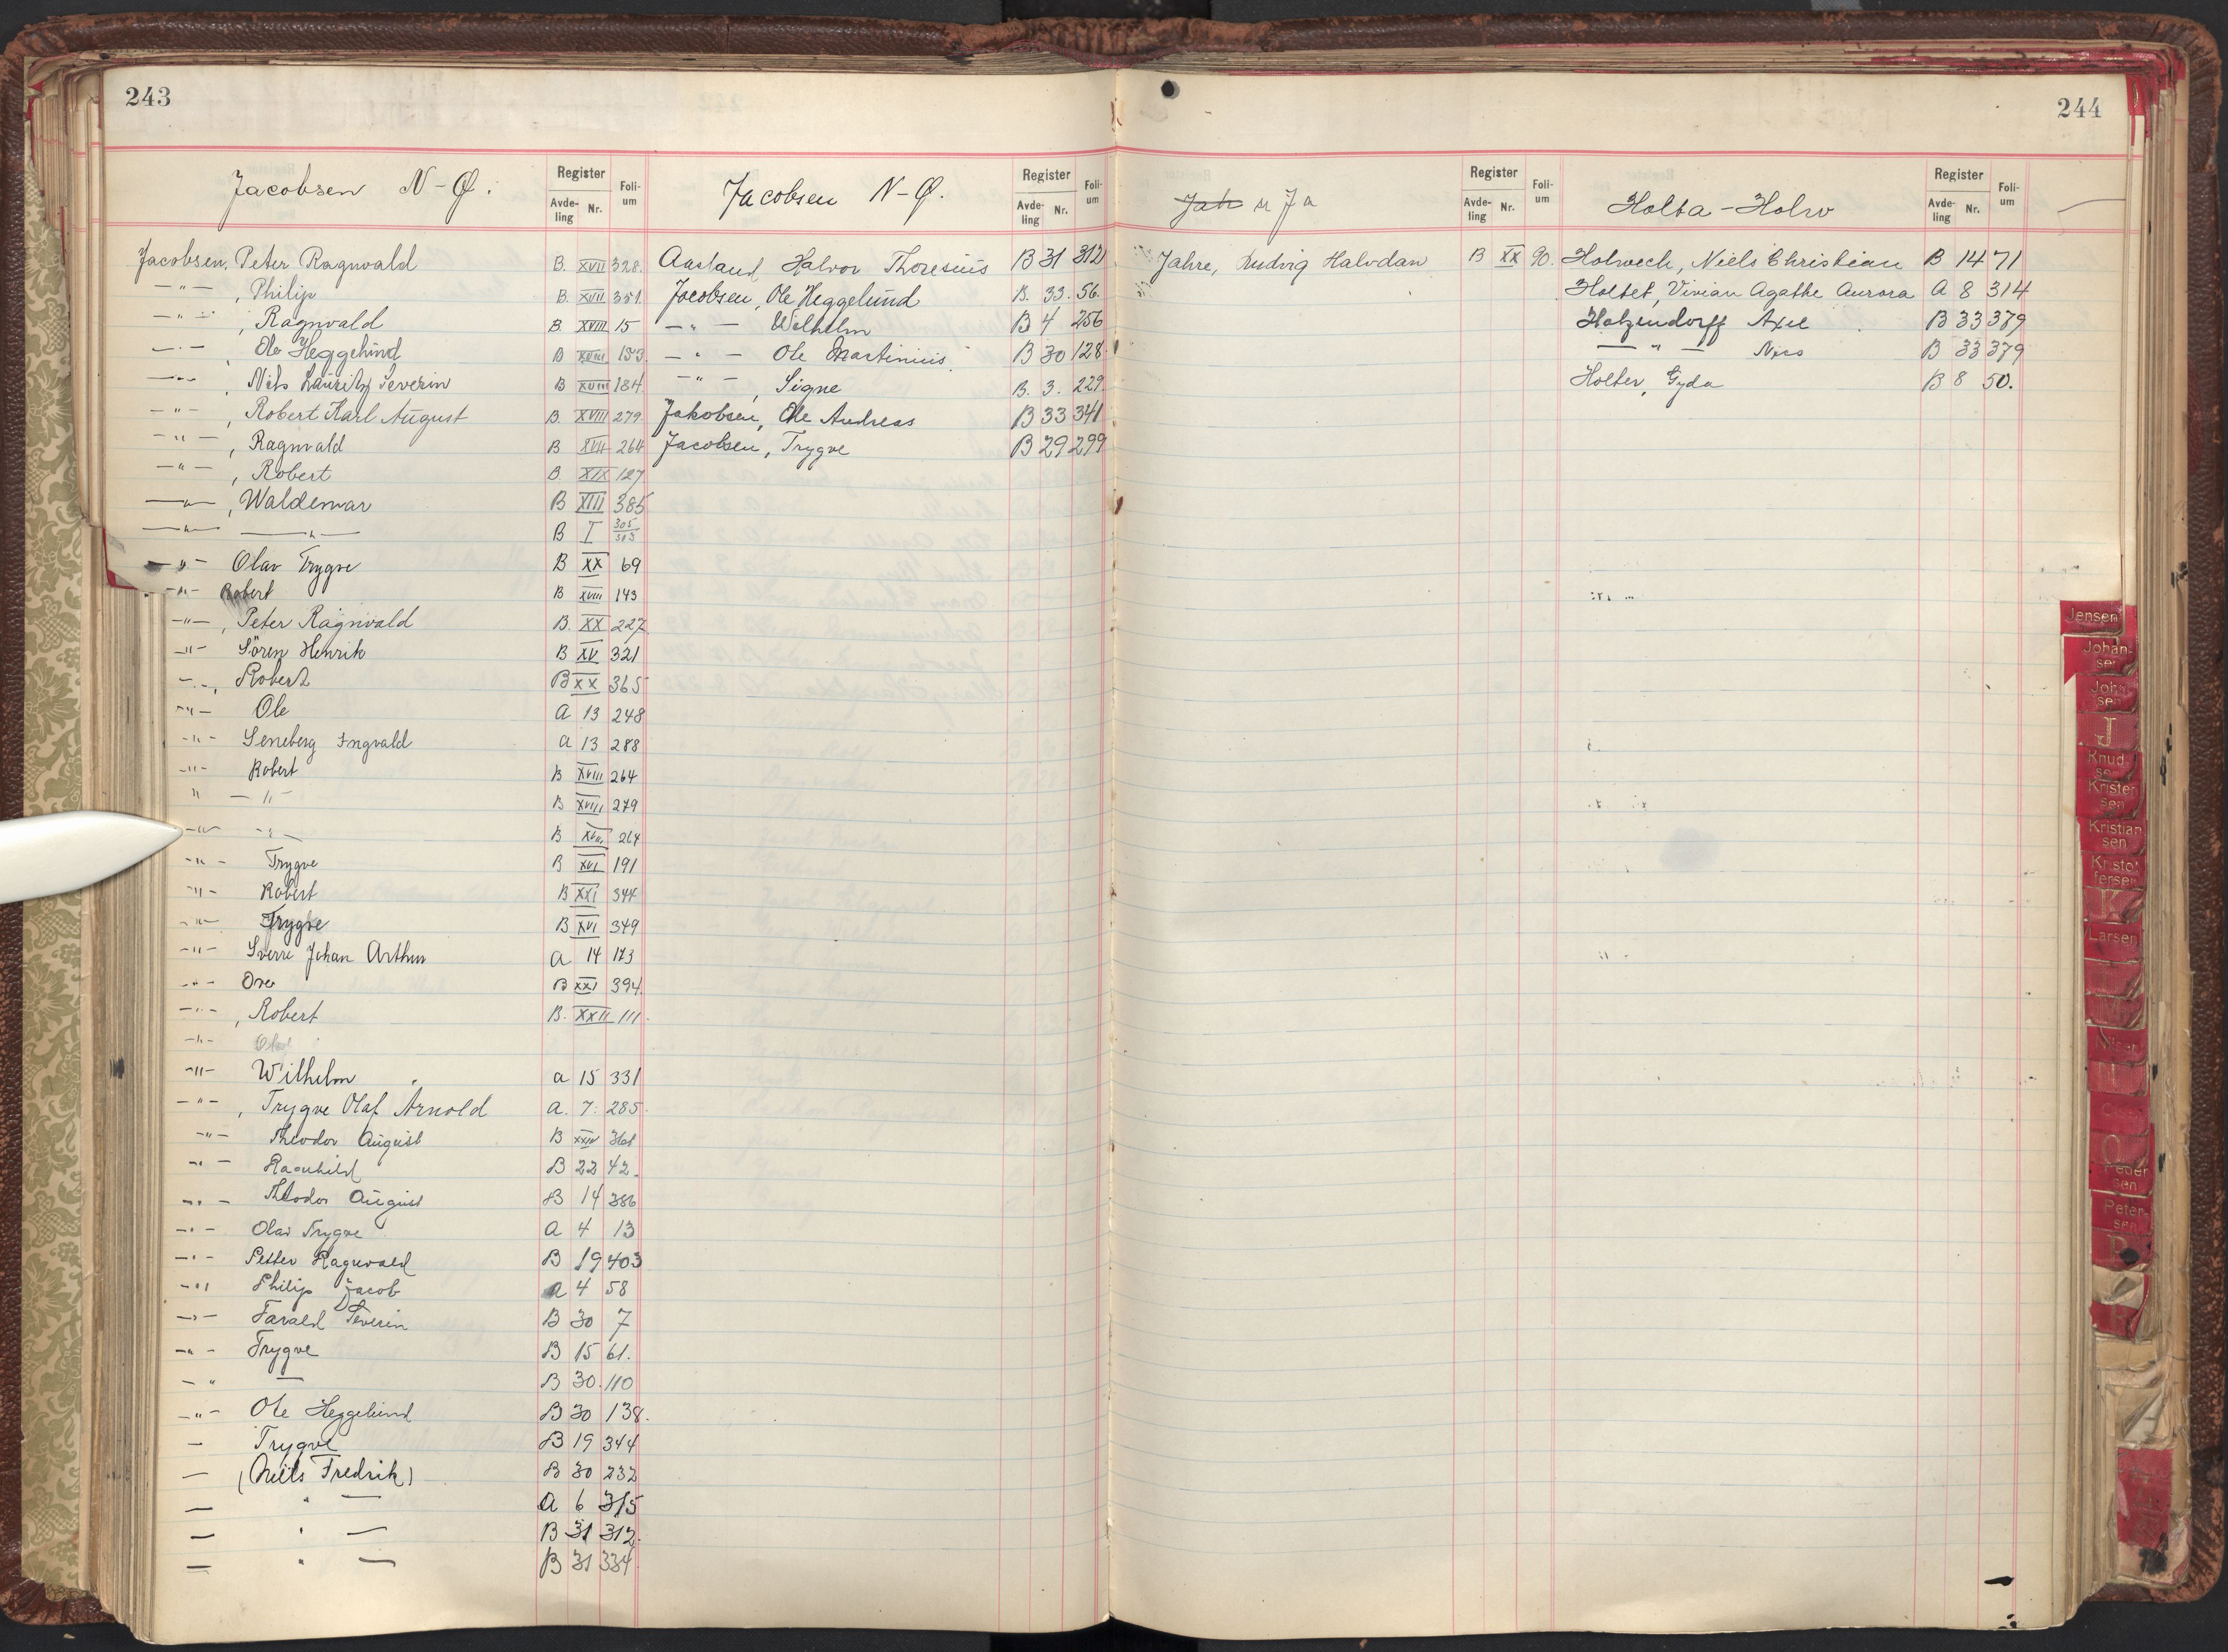 243
Jacobsen N-Ø.
Register
Avde-
ling
Nr.
Foli-
um
Jacobsen, Peter Ragnvald B. XVII 328.
-"- , Philip B. XVII 351.
-"- , Ragnvald B XVIII 15
-"- , Ole Heggelund B XVIII 153.
-"- , Nils Lauritz Severin B XVIII 184
-"- , Robert Karl August B. XVIII 279.
-"- , Ragnvald B XVII 264
-"- , Robert B. XIX 127
-"- , Waldemar B XIII 385
-"- -"- B I 305
-"- Olav Trygve B XX 69
-"- Robert B XVIII 143
-"- , Peter Ragnvald B. XX 227
-"- Sören Henrik B XV 321
-"- , Robert B XX 365
-"- Ole A 13 248
-"- Seneberg Ingvald A 13 288
-"- Robert B XVIII 264
" -"- B XVIII 279
-"- -"- B XVIII 264
-"- Trygve B XVI 191
-"- Robert B XXI 344
-"- Trygve B XVI 349
-"- Sverre Johan Arthur A 14 173
-"- Ove B XXI 394.
-"- , Robert B. XXII 111.
-"- Ole
-"- Wilhelm A 15 331
-"- , Trygve Olaf Arnold A. 7. 285.
-"- Theodor August B XXIV
-"- Ragnhild B 22 42.
-"- Theodor August B 14 386
-"- Olav Trygve A 4 13
-"- Petter Ragnvald B 19 403
-"- Philip Jacob A 4 58
-"- Farald Severin B 30 7
-"- Trygve B 15 61.
-" — B 30. 110
-"- Ole Heggelund B 30 138.
- Trygve B 19 344
- (Niels Fredrik) B 30 232
— " — A 6 315
— " — B 31 312.
— " — B 31 334
Jacobsen N-Ø.
Register
Avde-
ling
Nr.
Foli-
um
Aasland, Halvor Thoresius B 31 312
Jacobsen, Ole Heggelund B. 33. 56.
-"- Wilhelm B 4 256
-"- Ole Martinius. B 30 128
-"- , Signe B. 3. 229.
Jakobsen, Ole Andreas B 33 341
Jacobsen, Trygve B 29 299
244
Jah Ja
Register
Avde-
ling
Nr.
Foli-
um
Jahre, Ludvig Halvdan B XX 90.
Holta - Holw
Register
Avde-
ling
Nr.
Foli-
um
Holweck, Niels Christian B 14 71
Holtet, Vivian Agathe Aurora A 8 314
Holzendorff Axel B 33 379
— " — B 33 379
Holter, Gyda B 8 50.
Jensen
Johan-
sen
Joh
sen
J
Knud-
se
Krister
sen
Kristian
sen
Kristof
fersen
K
Larsen
O
Peder
sen
Peter-
sen